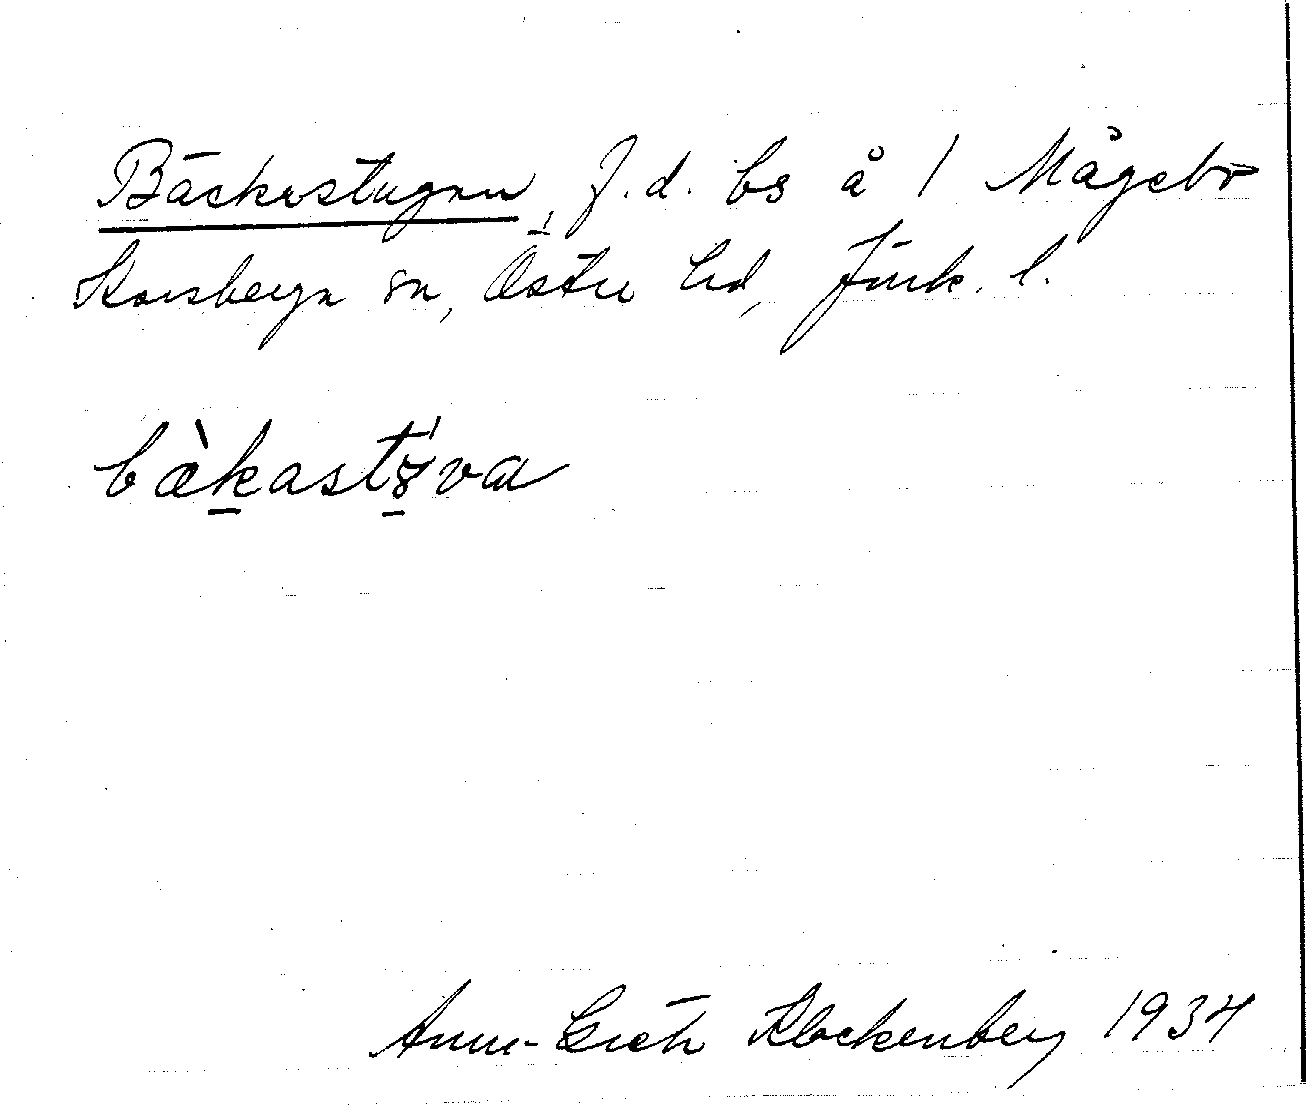 Bäckestugan, f.d. bs å 1 Mågebo
Korsberga sn, Östra hd, Jönk. l.
bæ̀kastøva
Anna-Greta Klockenberg 1934